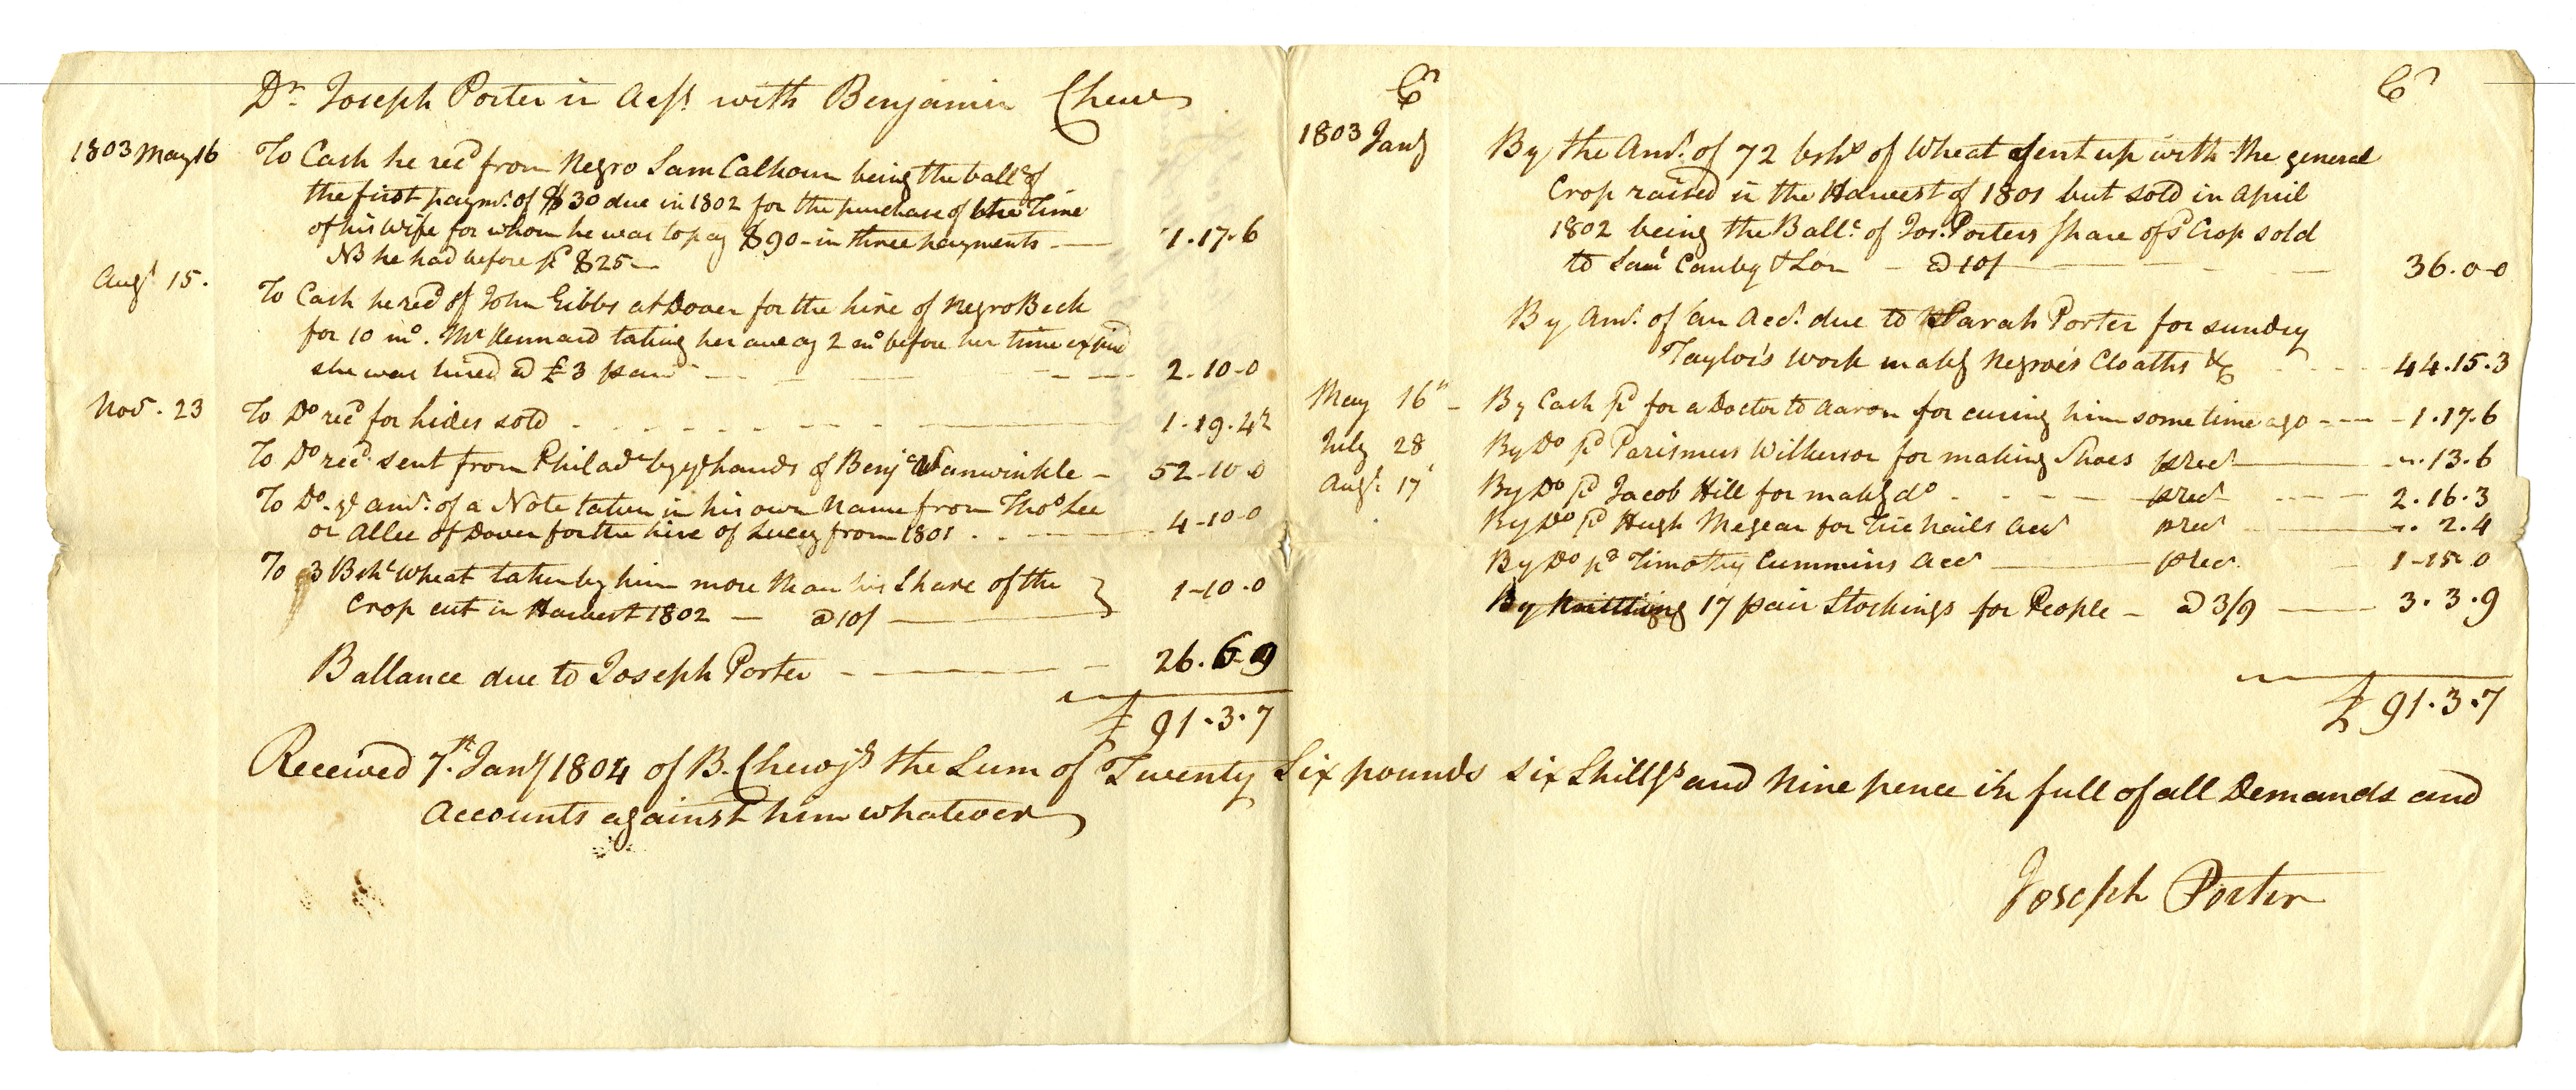 Dr Joseph Porter in Acct with Benjamin Chew
1803 May 16 To Cash he recd from Negro Sam Calhoun being the ballc of
the first paymt of $30 due in 1802 for the purchase of the Time
of his Wife for whom he was to pay $90 - in three payments — 1.17.6
NB he had before pd $25 —
Augt 15. To Cash he recd of John Gibbs at Dover for the hire of Negro Beck
for 10 mo. Mr Kennard taking her away 2 mo before her time expired
she was hired @ £3 pr an — 2-10-0
Novr. 23 To Do recd for hides sold — 1.19.4½
To Do recd. sent from Philada by ye hands of Benj Vanwinkle — 52-10-0
To Do - ye amt. of a Note taken in his own Name from Thos Lee
or Allee of Dover for the hire of Lucy from 1801 . . — 4-10-0
To 3 Bshs Wheat taken by him more than his Share of the
Crop cut in Harvest 1802 — @ 10/ — 1-10.0
Ballance due to Joseph Porter — 26.6-9
£ 91.3.7
Cr Cr
1803 Jany By the Amt. of 72 bshs of Wheat sent up with the general
Crop raised in the Harvest of 1801 but sold in April
1802 being the Ballc. of Jos. Porters Share of sd Crop sold
to Saml Canby & Son — @ 10/ — 36.0-0
By Amt. of an Acct. due to Sarah Porter for sundry
Taylor's Work makg Negroe's Cloaths &c — 44.15.3
May 16th — By Cash pd for a Doctor to Aaron for curing him some time ago — 1.17.6
July 28 By Do pd Parismus Wilkerson for making Shoes pr rect — .13.6
Augt. 17 By Do pd Jacob Hill for makg do — pr rect — 2.16.3
By Do pd Hugh Megear for Nails Acct pr rect — . 2.4
By Do pd Timothy Cummins Acct — pr rect. 1-15.0
By Knitting 17 pair Stockings for People — @ 3/9 — 3.3.9
£ 91.3.7
Received 7th. Jany 1804 of B. Chew Jr the Sum of Twenty Six pounds six Shillgs and Nine pence in full of all Demands and
Accounts against him whatever
Joseph Porter